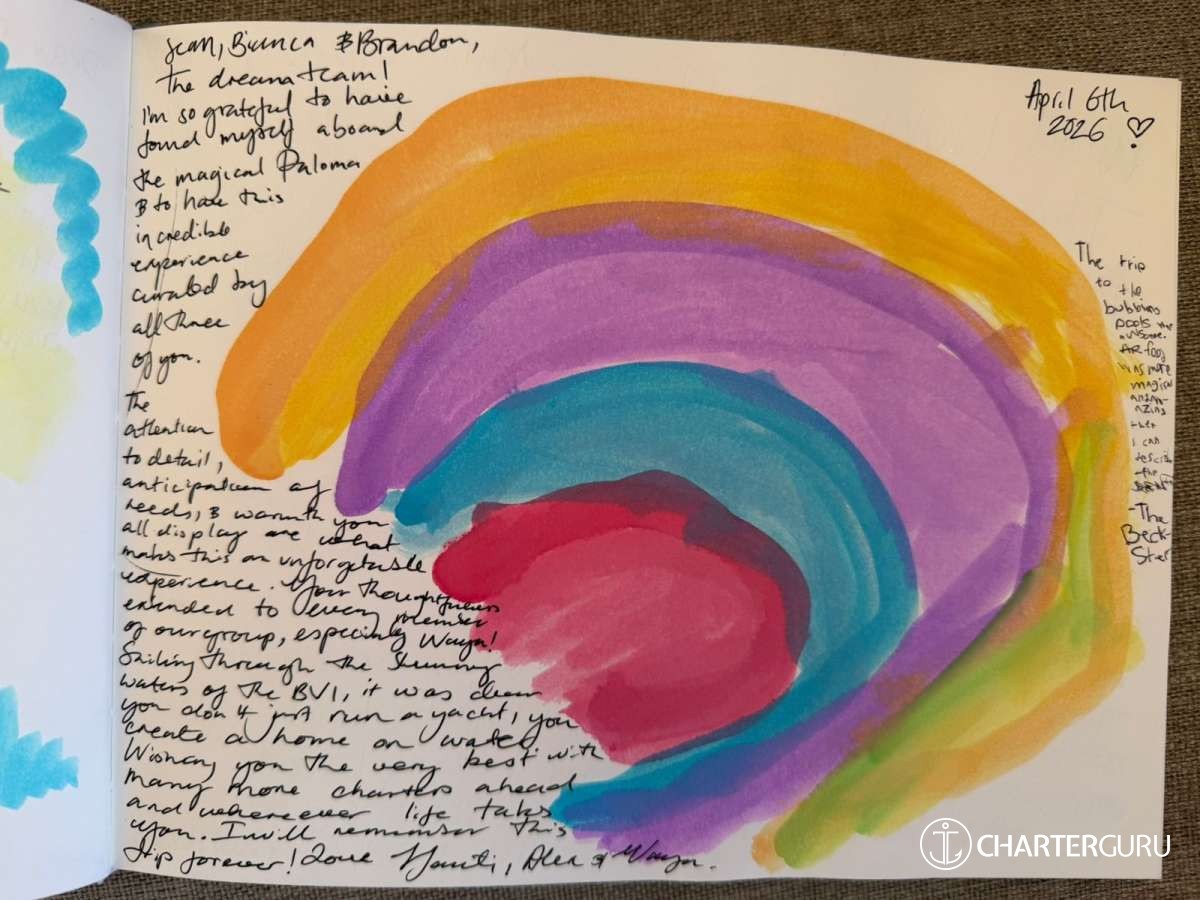 Sean, Bianca & Brandon,
The dream team!
I'm so grateful to have
found myself aboard
the magical Paloma
& to have this
incredible
experience
curated by
all three
of you.
The
attention
to detail,
anticipation of
needs, & warmth you
all display are what
makes this an unforgetable
experience. Your thoughtfulness
extended to every member
of our group, especially Wayan!
Sailing through the stunning
waters of the BVI, it was clear
you don't just run a yacht, you
create a home on water.
Wishing you the very best with
many more charters ahead
and whereever life takes
you. I will remember this
trip forever! Love Alex &
April 6th
2026 ♡
The trip
to the
bubbling
pools was
awsome.
food
was more
magical
and
than
I can
the
-The
Beck-
Ster
CHARTERGURU